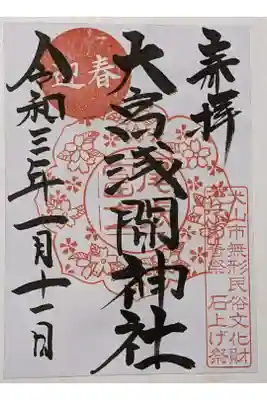 奉拝
犬山市無形民俗文化財
石上げ祭
大宮浅間神社
迎春
令和三年一月十一日